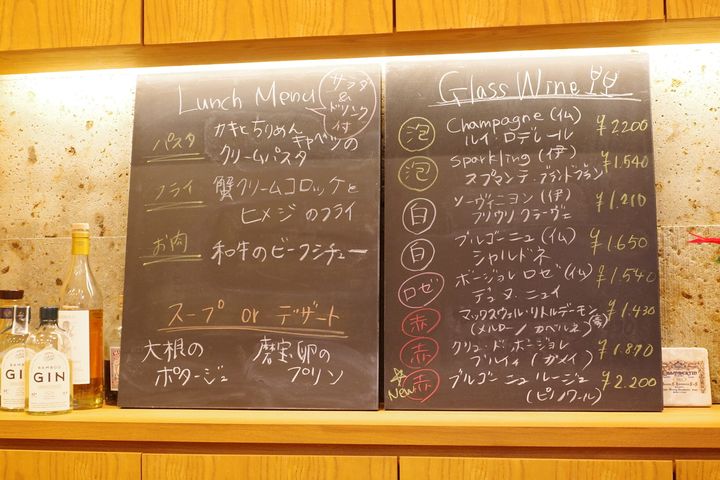 Lunch Menu
サラダ
&
ドリンク
付
パスタ
カキとちりめんキャベツの
クリームパスタ
フライ
蟹クリームコロッケと
ヒメジのフライ
お肉
和牛のビーフシチュー
スープ or デザート
大根の
ポタージュ
磨宝卵の
プリン
Glass Wine
泡 Champagne (仏) ¥2200
ルイ ロデレール
泡 Sparkling (伊) ¥1.540
スプマンテ・ブランドブラン
白 ソーヴィニヨン (伊) ¥1.210
フリウリ グラーヴェ
白 ブルゴーニュ (仏) ¥1.650
シャルドネ
ロゼ ボージョレ ロゼ (仏) ¥1.540
デュヌ ニュイ
赤 マックスウェル・リトルデーモン ¥1.430
(メルロー/カベルネ)(豪)
赤 クリュ・ド・ボージョレ ¥1.870
ブルイィ (ガメイ)
New 赤 ブルゴーニュ ルージュ ¥2.200
(ピノノワール)
BAMBOO
GIN
GIN